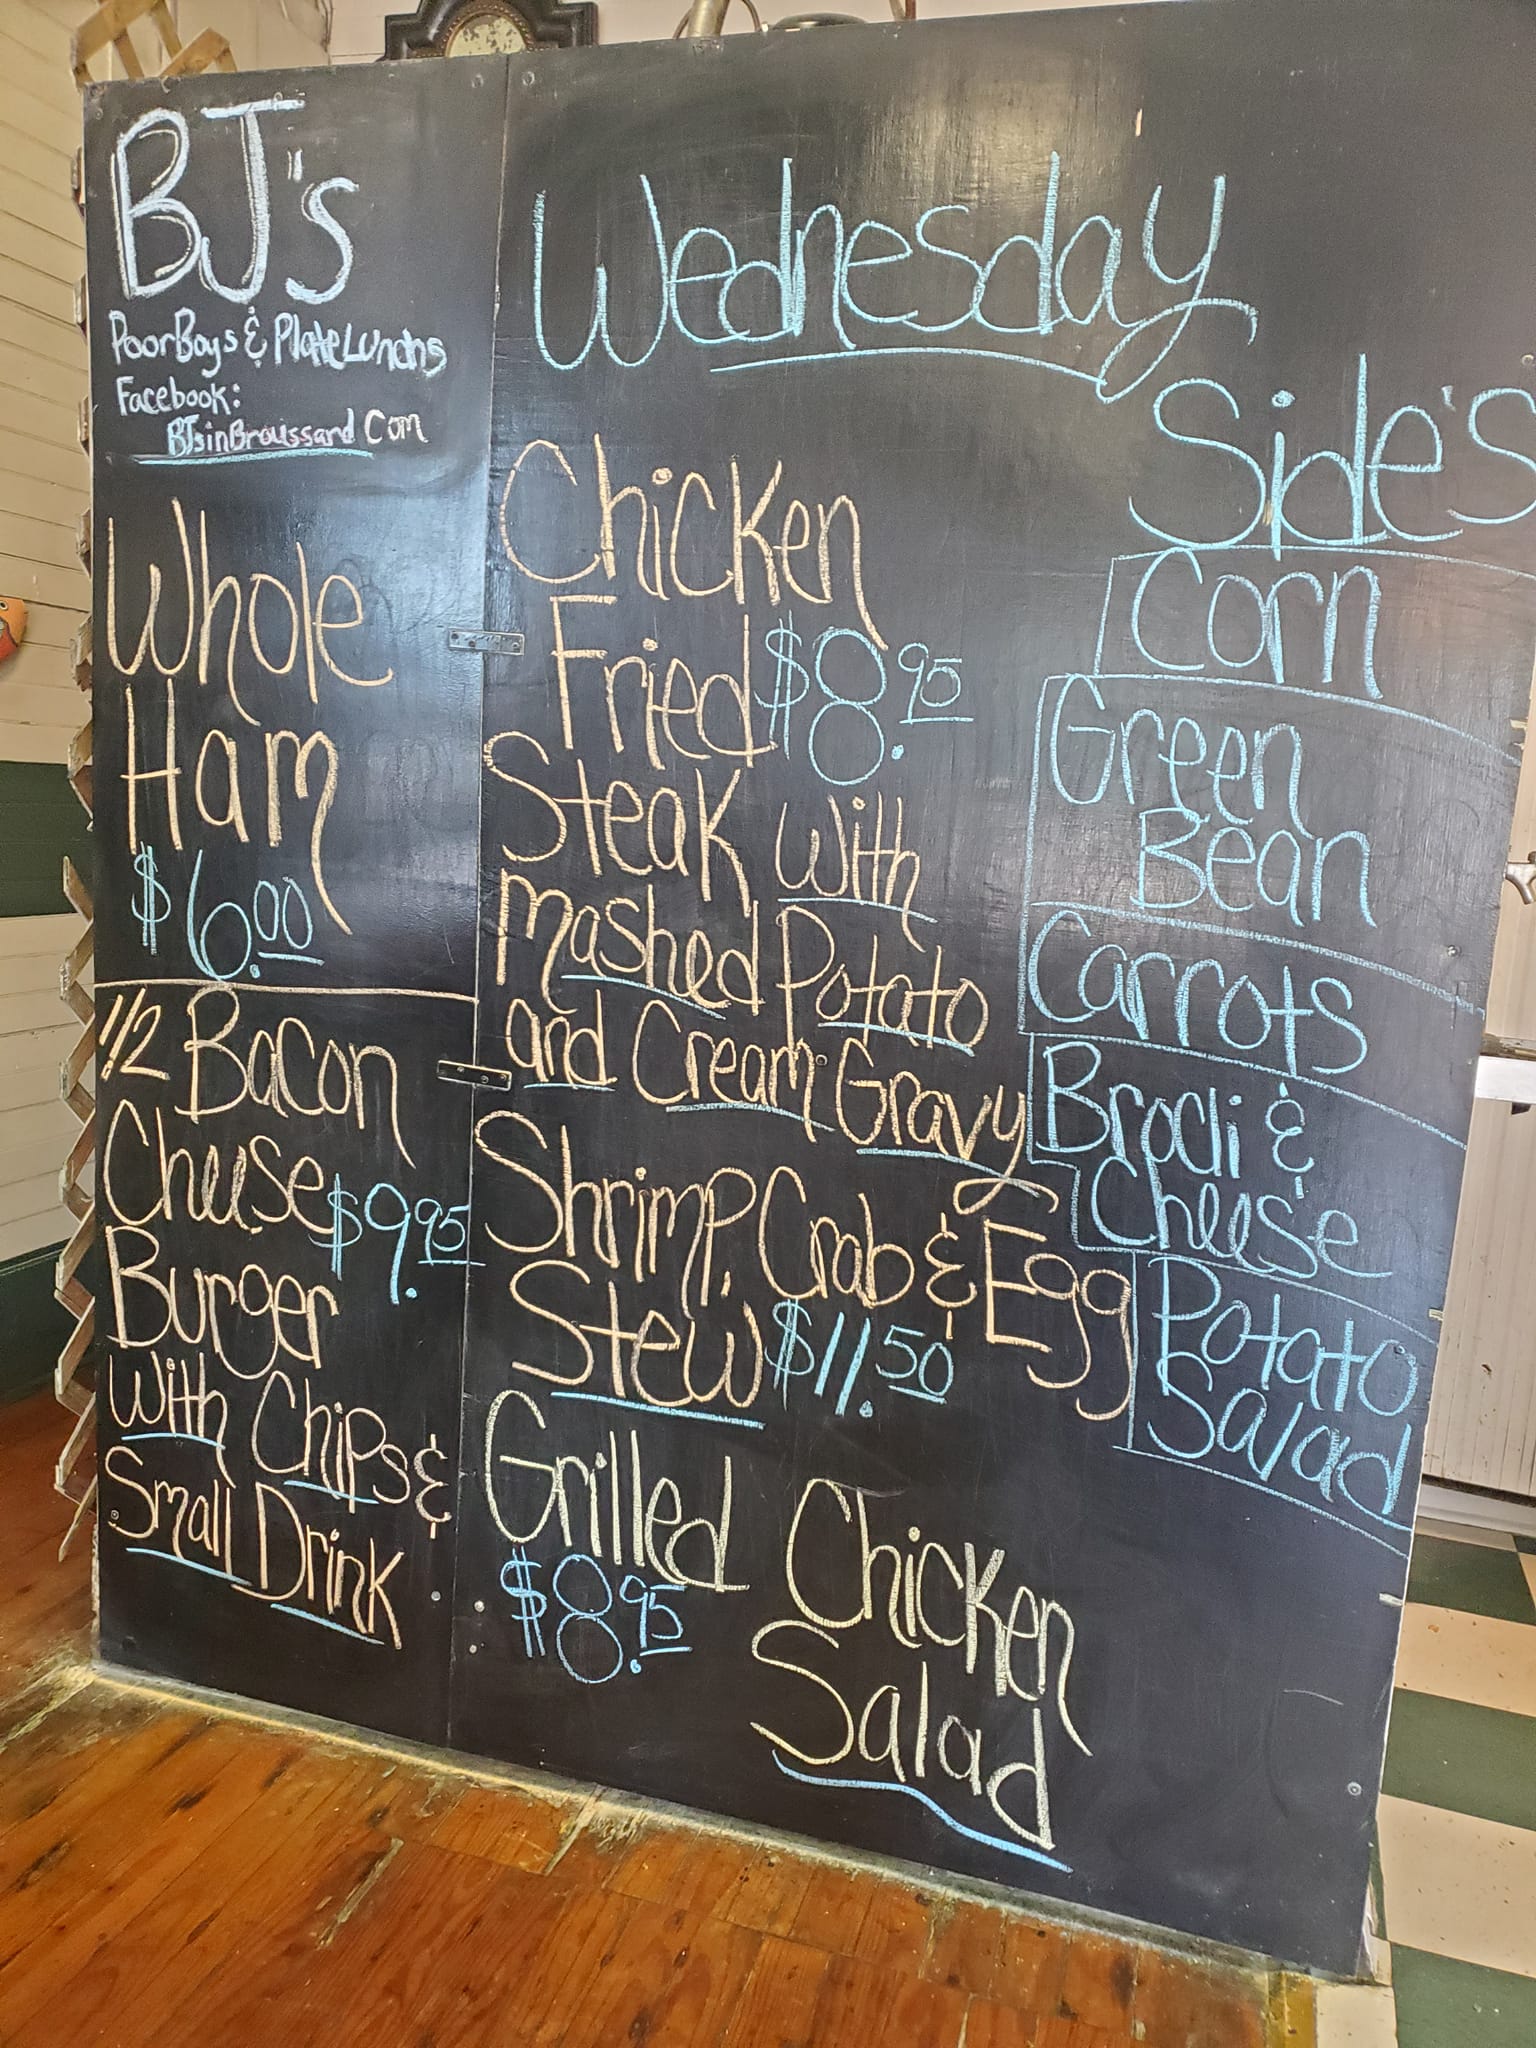 BJ's
PoorBoys & PlateLunchs
Facebook:
BJsinBroussard Com
Whole
Ham
$6.00
1/2 Bacon
Cheese $9.95
Burger
with Chips &
Small Drink
Wednesday
Chicken
Fried $8.95
Steak with
mashed Potato
and Cream Gravy
Shrimp, Crab & Egg
Stew $11.50
Grilled
Chicken
$8.95
Salad
Side's
Corn
Green
Bean
Carrots
Brocli &
Cheese
Potato
Salad